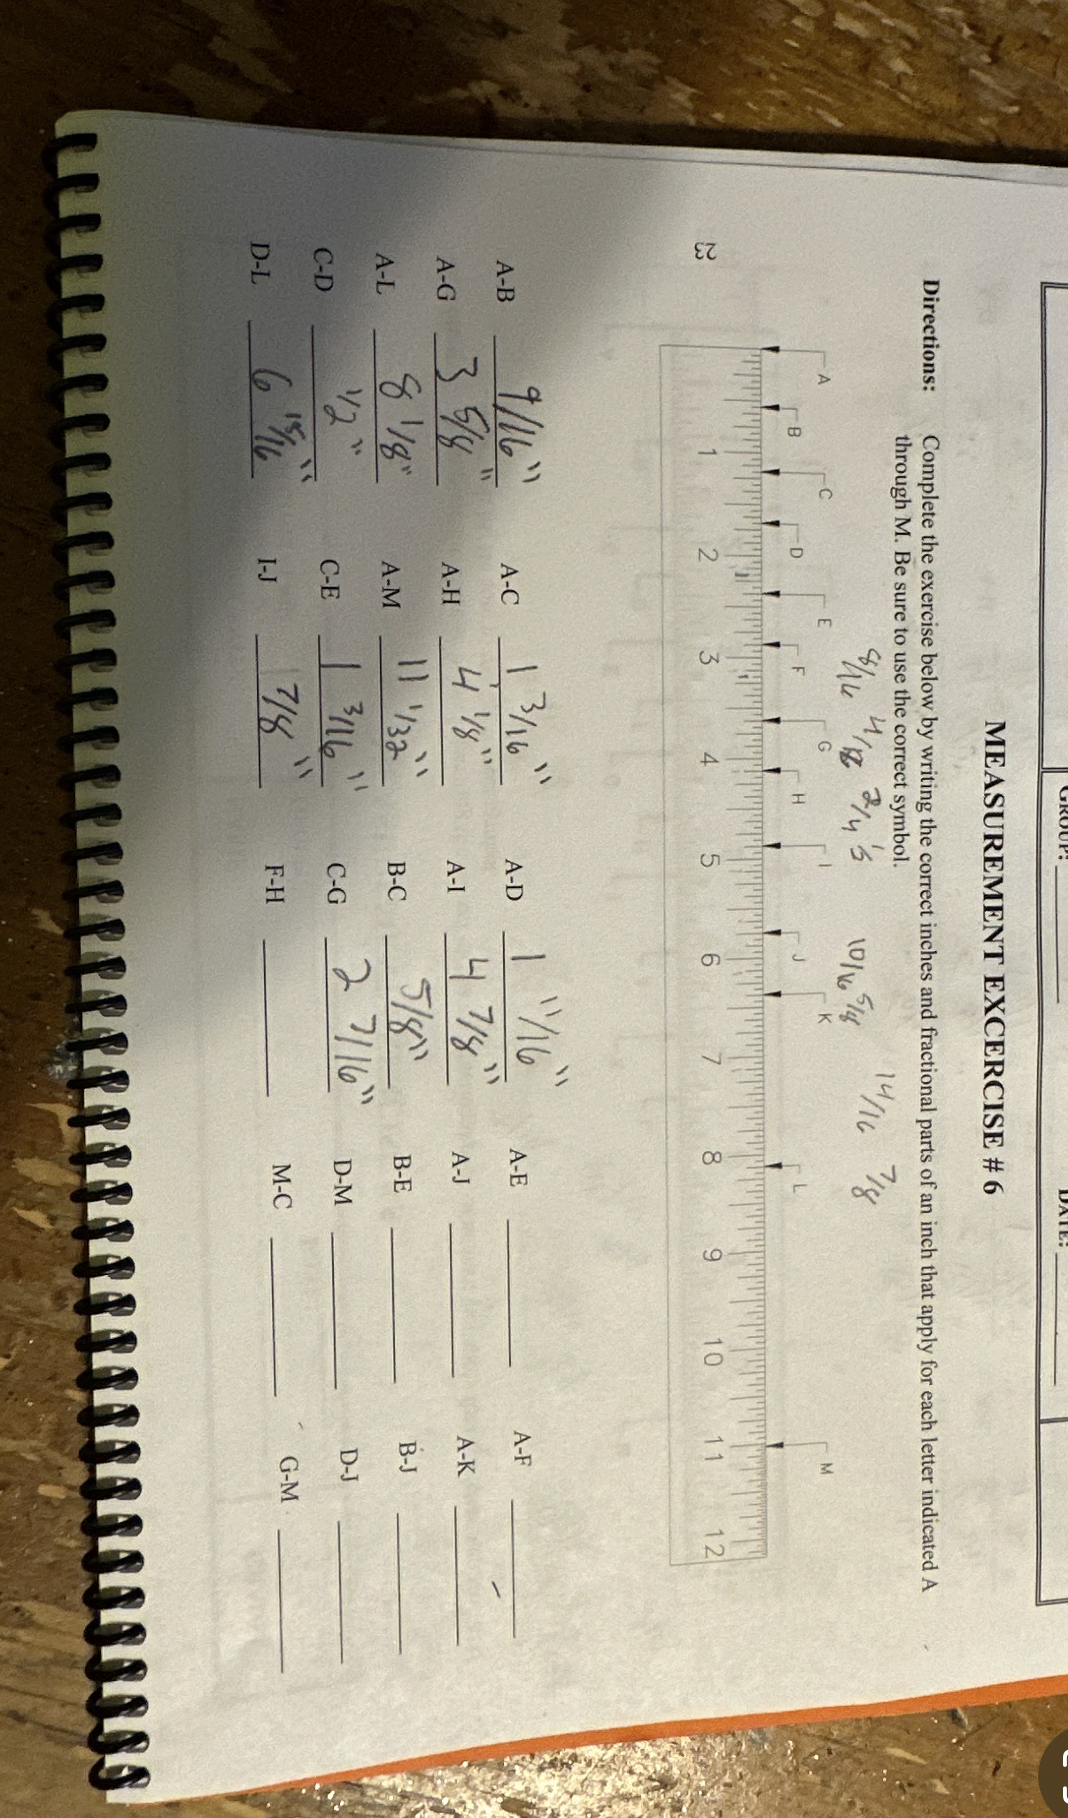 GROUP: DATE:
MEASUREMENT EXCERCISE # 6
Directions: Complete the exercise below by writing the correct inches and fractional parts of an inch that apply for each letter indicated A
through M. Be sure to use the correct symbol.
8/16 2/4's 10/16 5/8 14/16 7/8
A B C D E F G H I J K L M
1 2 3 4 5 6 7 8 9 10 11 12
23
A-B 9/16" A-C 1 3/16" A-D 1 11/16" A-E A-F
A-G 3 5/8" A-H 4 1/8" A-I 4 7/8" A-J A-K
A-L 8 1/8" A-M 11 1/32" B-C 5/8" B-E B-J
C-D 1/2" C-E 1 3/16" C-G 2 7/16" D-M D-J
D-L 6 15/16" I-J 7/8" F-H M-C G-M